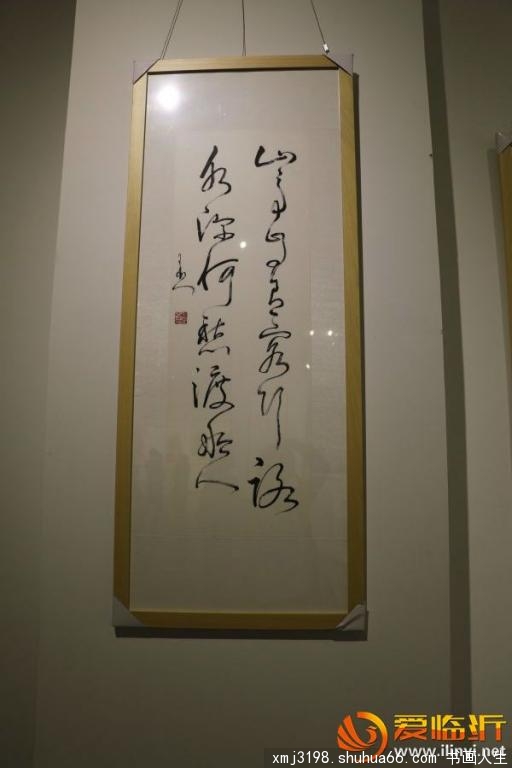 山高自有客行路
水深何愁渡船人
爱临沂
www.ilinyi.net
xmj3198.shuhua66.com 书画人生